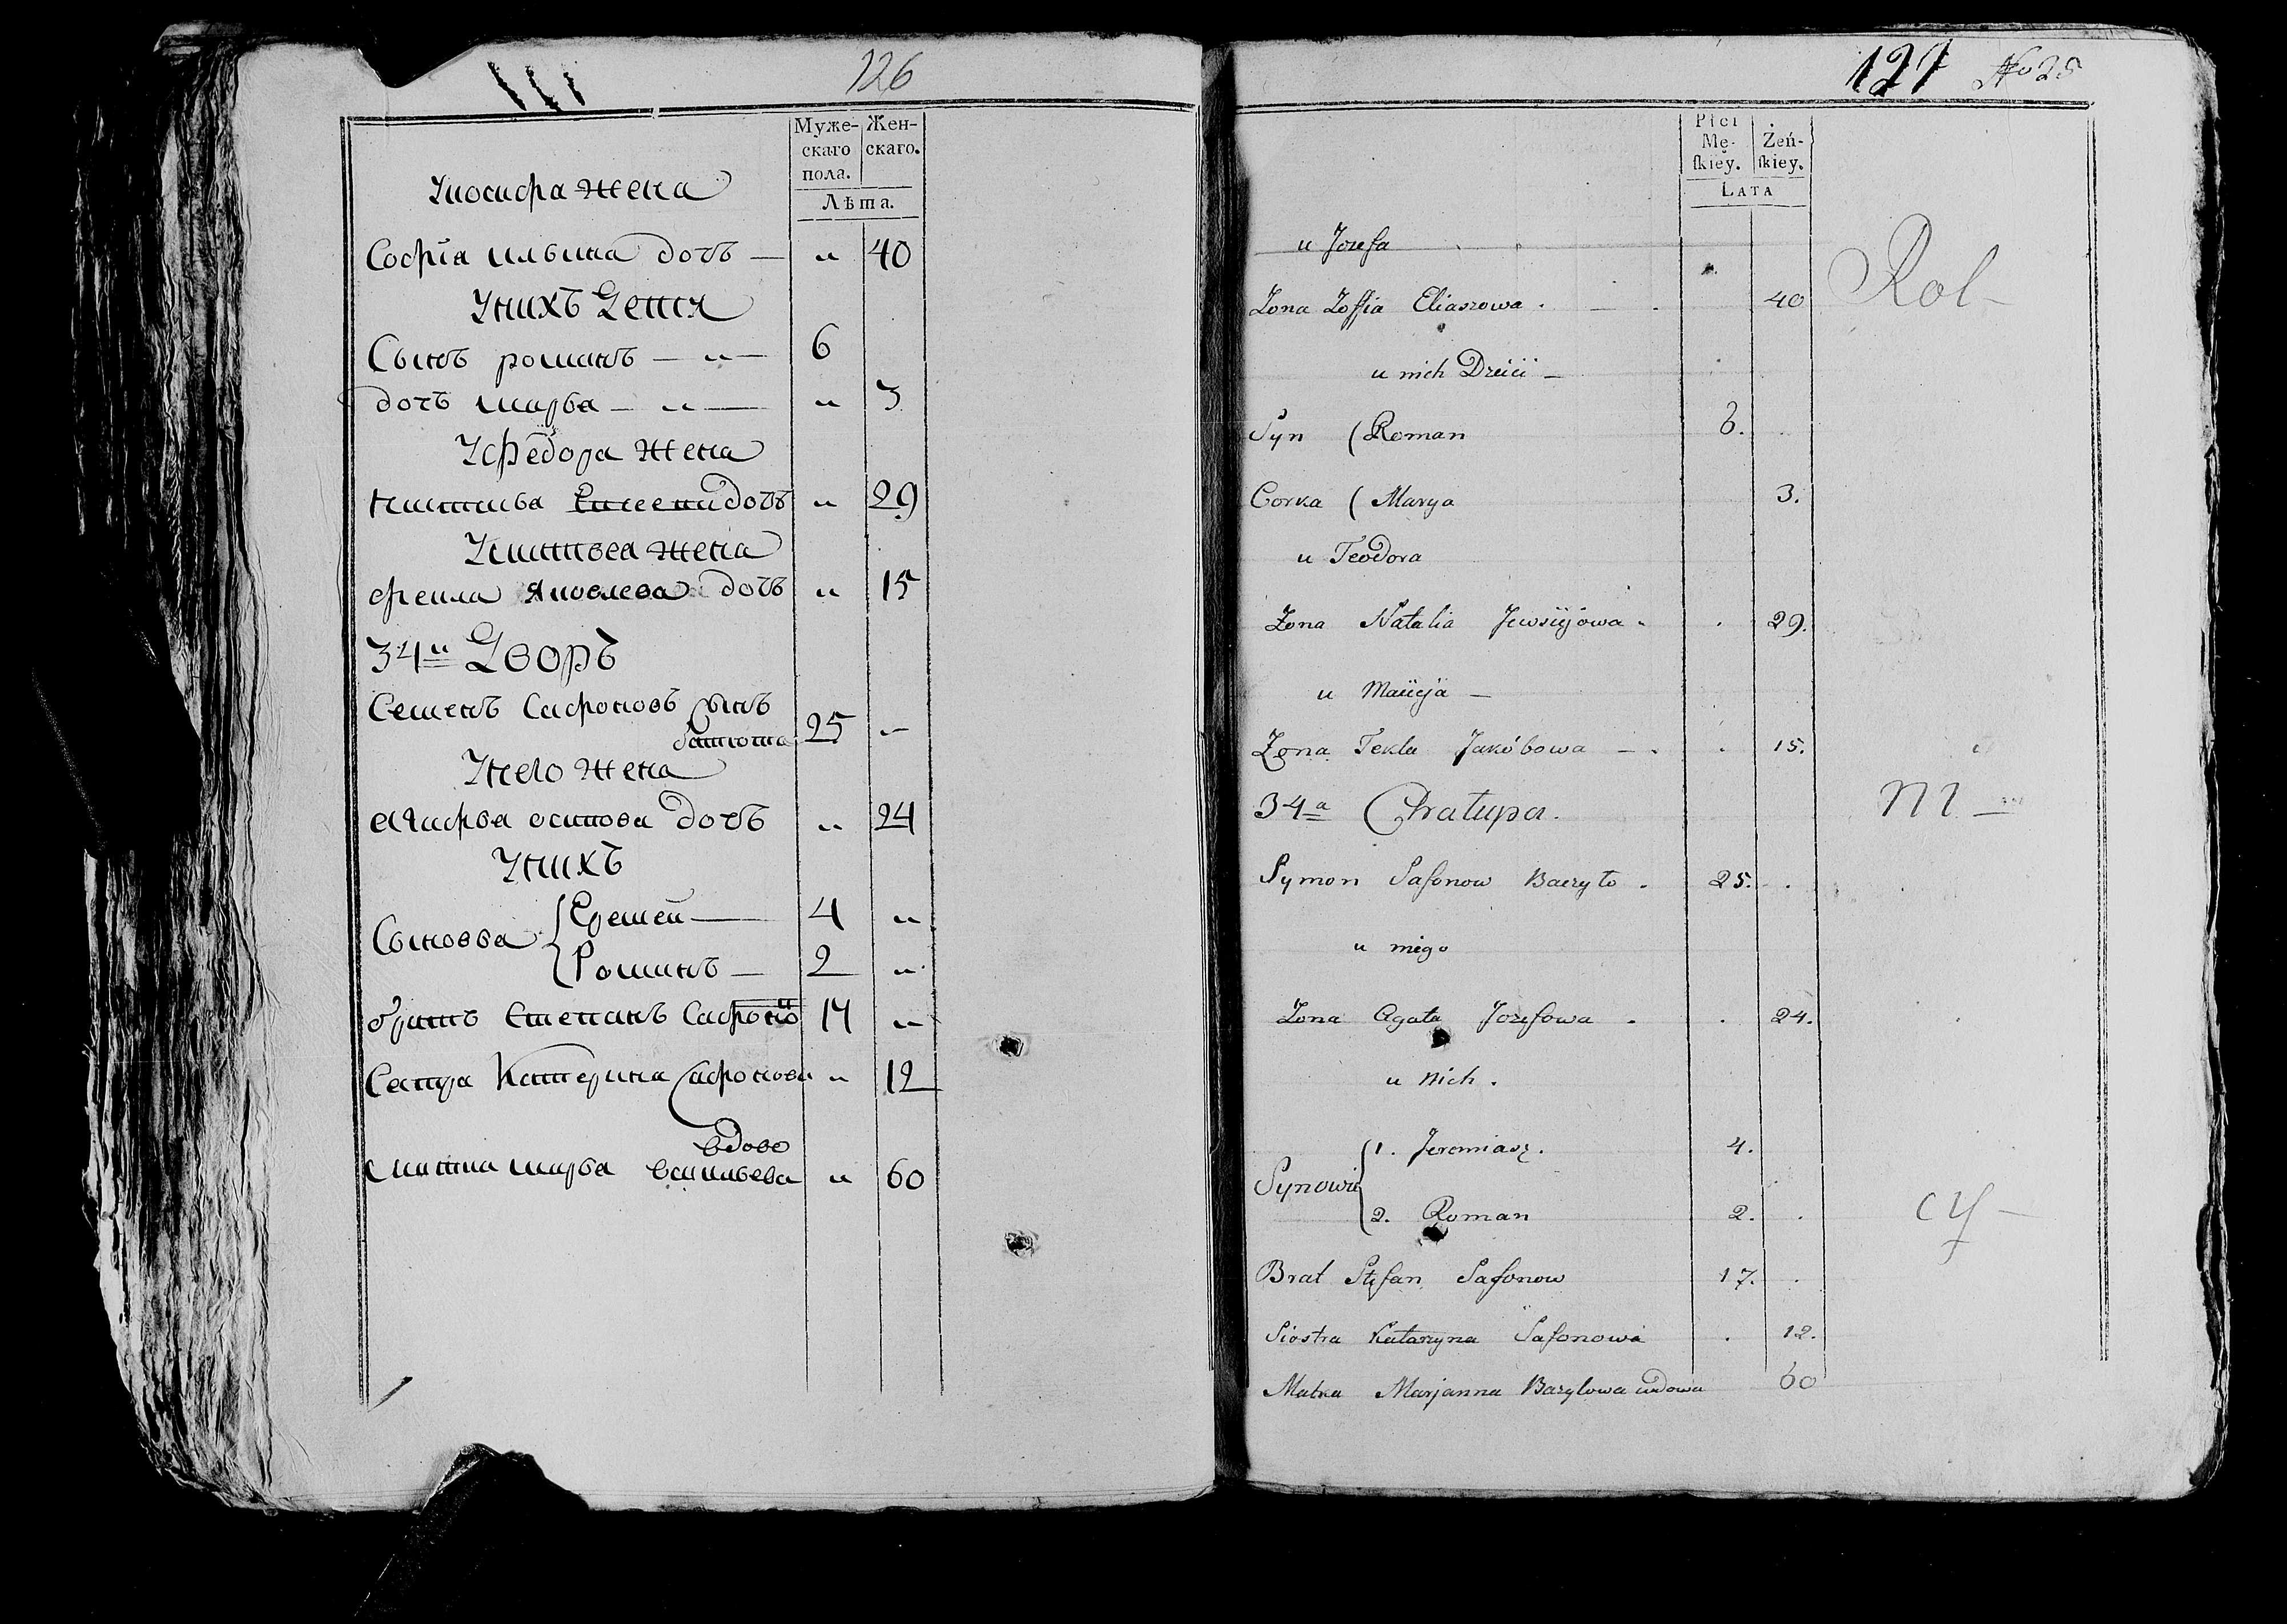 126
Муже-
скаго
пола.
Жен-
скаго.
Лѣта.
Уиосифа жена
Софїа илвина дочъ — „ 40
Унихъ Дети
Сынъ романъ — „ — 6
дочъ марва — „ — „ 3
Уфедора жена
дочъ „ 29
жена
Яковлева дочъ „ 15
34и Дворъ
Семенъ Сафоновъ Сынъ
25 —
Унего жена
агафва осипова дочъ „ 24
Унихъ
Сыновва
Еремей — 4 „
Романъ — 2 „
братъ Степанъ 17 „
Сестра Катерина Сафонова „ 12
вдова
марва василвева „ 60
127 No 25
Płci
Mę-
skiey.
Żeń-
skiey.
LATA
u Jozefa
Zona Zoffia Eliaszowa . — . 40
Rol-
u nich Dzieici —
Syn ( Roman 6.
Corka ( Marya 3.
u Teodora
Zona Natalia Jewsiejowa . . 29.
u Maïieja —
Zona Tekla Jakóbowa — . . 15.
34a Chałupa.
ni —
Symon Safonow Bazyło . 25. .
u niego
Zona Agata Jozefowa . . 24.
u nich .
Synowie
1. Jeremiasz. 4.
2. Roman 2. .
cy —
Brat Stefan Safonow 17. .
Siostra Katarzyna Safonowa . 12.
Matka Marjanna Bazylowa wdowa 60